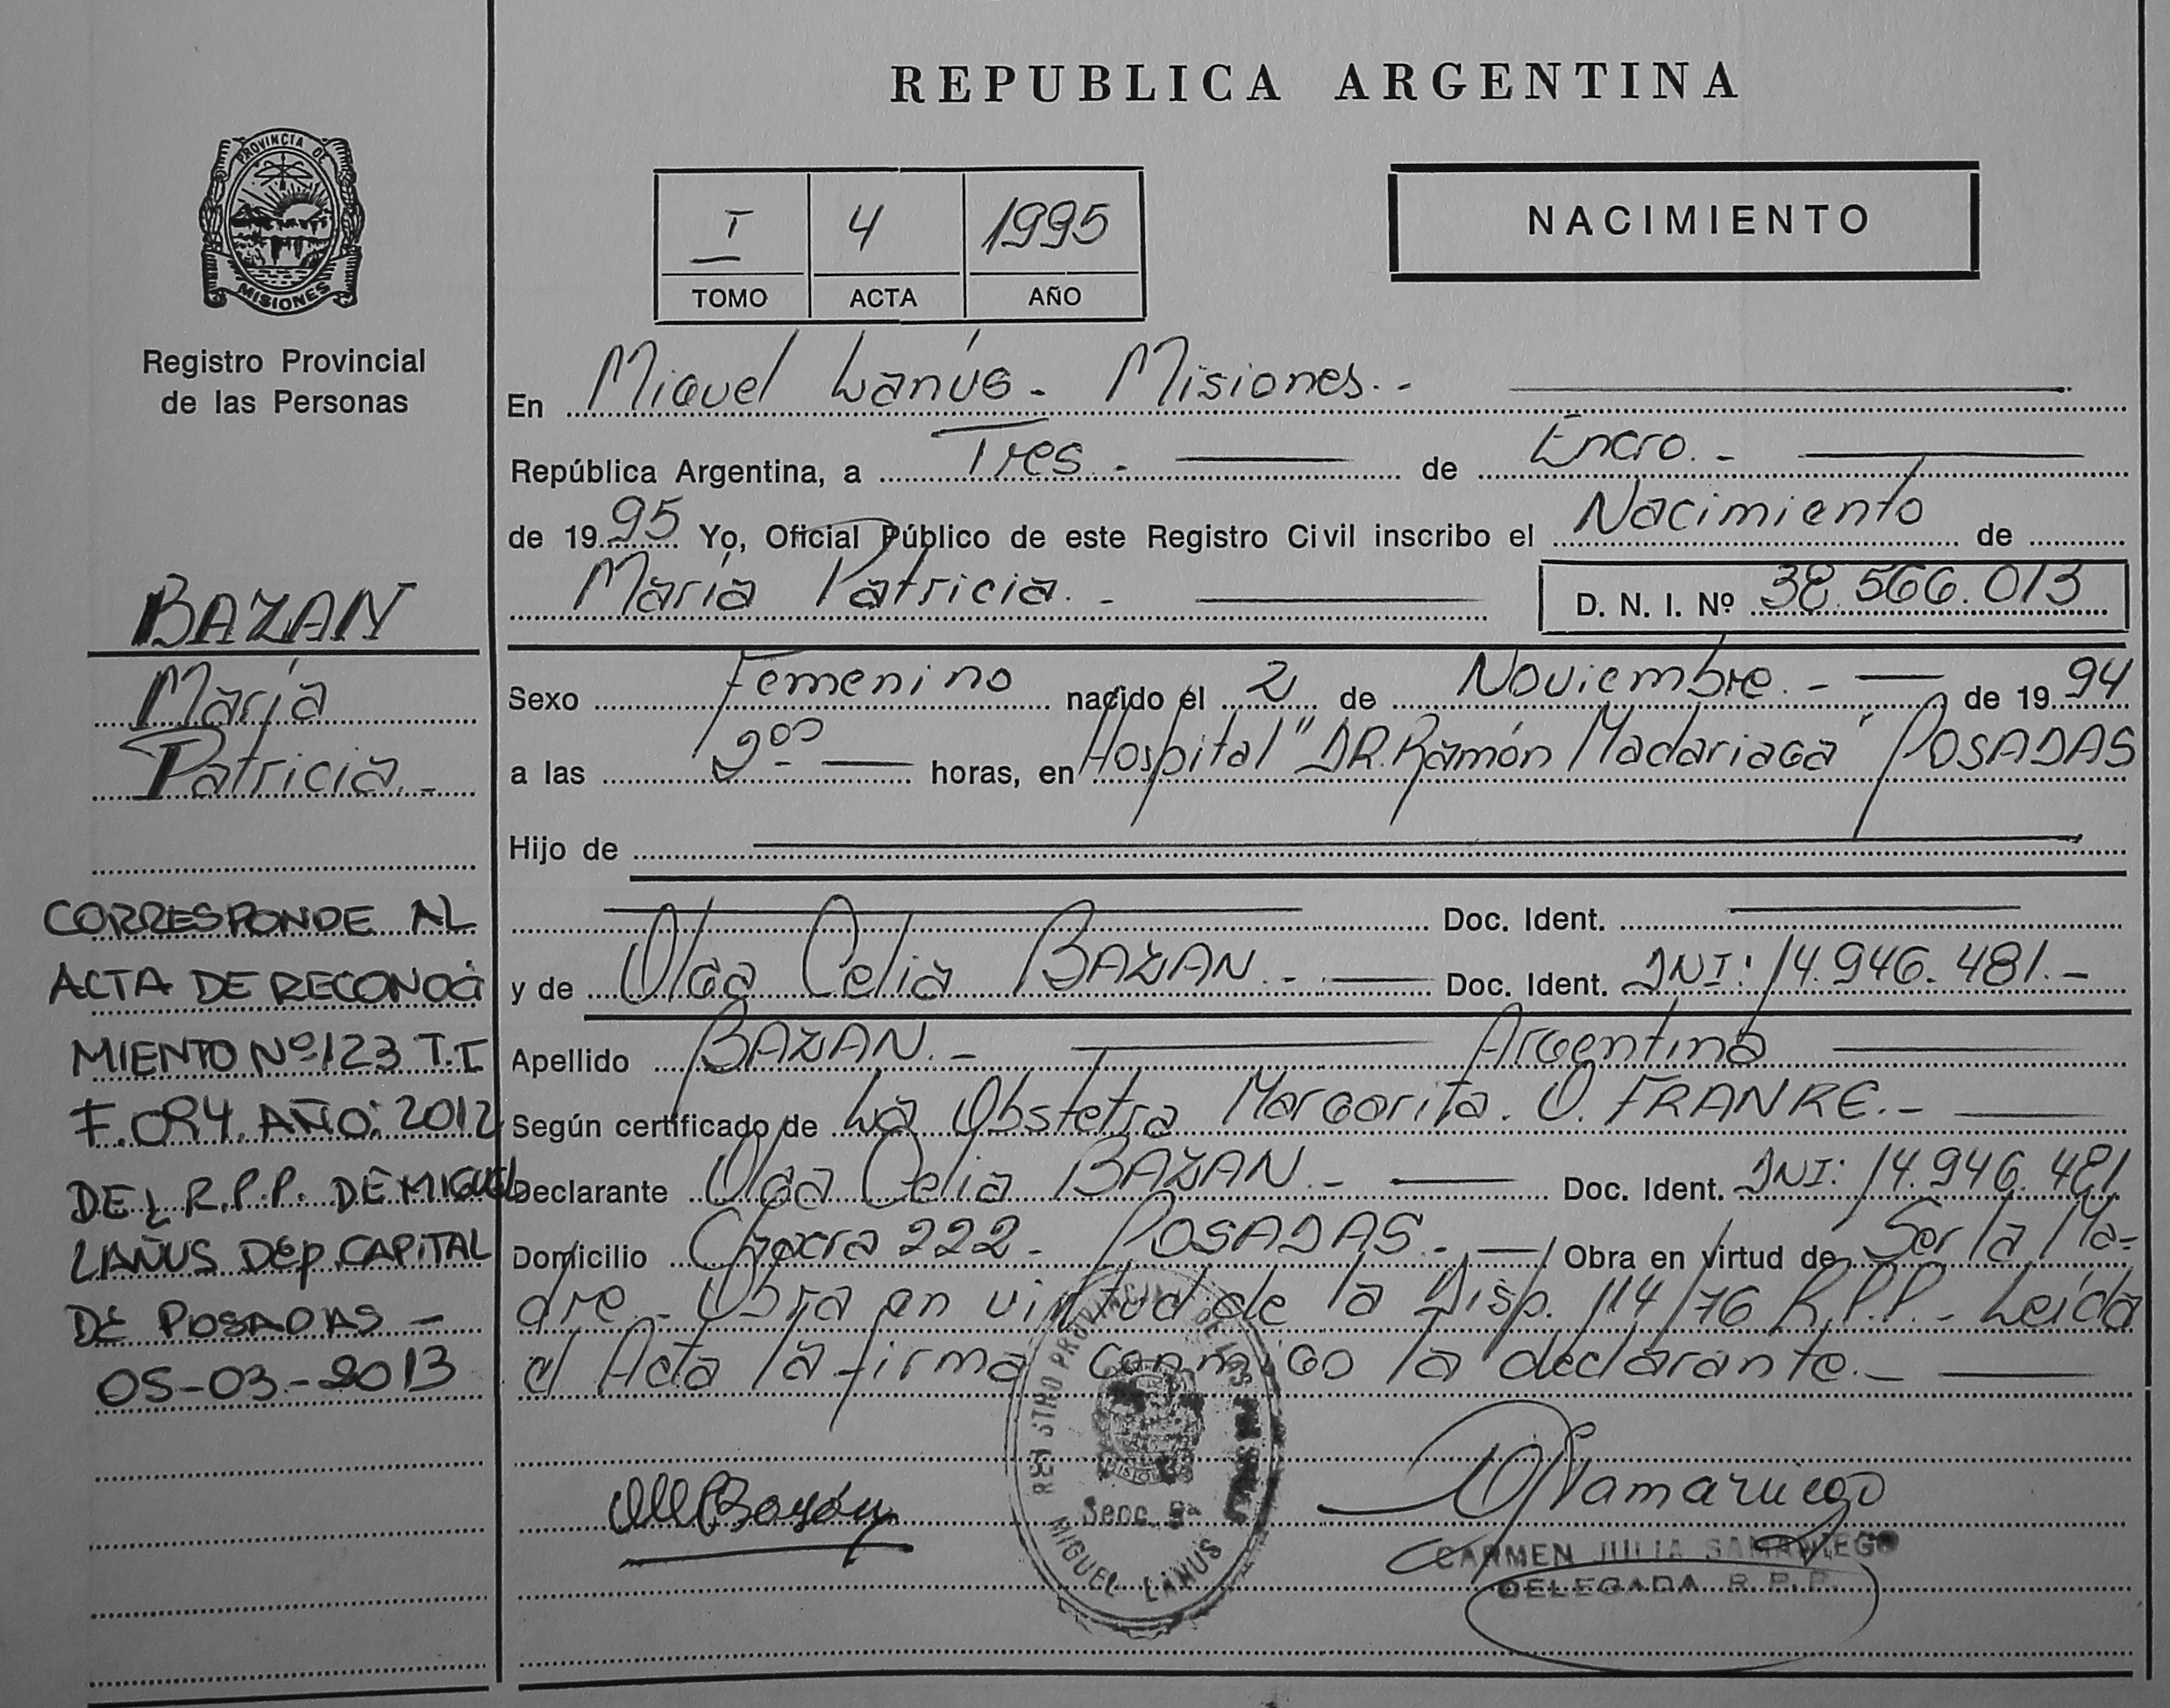 REPUBLICA ARGENTINA
PROVINCIA DE
MISIONES
Registro Provincial
de las Personas
I 4 1995
TOMO ACTA AÑO
NACIMIENTO
En Miguel Lanús - Misiones.-
República Argentina, a Tres.- de Enero.-
de 1995 Yo, Oficial Público de este Registro Civil inscribo el Nacimiento de
María Patricia.- D. N. I. Nº 38.566.013
Sexo Femenino nacido el 2 de Noviembre.- de 1994
a las 9:00 horas, en Hospital "DR. Ramón Madariaga" POSADAS
Hijo de
Doc. Ident.
y de Olga Celia BAZAN.- Doc. Ident. DNI: 14.946.481.-
Apellido BAZAN.- Argentina
Según certificado de La Obstetra Margarita. O. FRANKE.-
Declarante Olga Celia BAZAN.- Doc. Ident. DNI: 14.946.481
Domicilio Chacra 222 - POSADAS.- Obra en virtud de Ser la Ma-
dre.- Obra en virtud de la Disp. 114/76 R.P.P.- Leída
el Acta la firma conmigo la declarante.-
BAZAN
María
Patricia.-
CORRESPONDE AL
ACTA DE RECONOCI
MIENTO Nº 123 T.I
F.084. AÑO: 2012
DEL R.P.P. DE MIGUEL
LAÑUS DEP. CAPITAL
DE POSADAS -
05-03-2013
REGISTRO PROVINCIAL DE LAS PERSONAS
Secc. 9ª
MIGUEL LANUS
CARMEN JULIA SAMANIEGO
DELEGADA R.P.P.